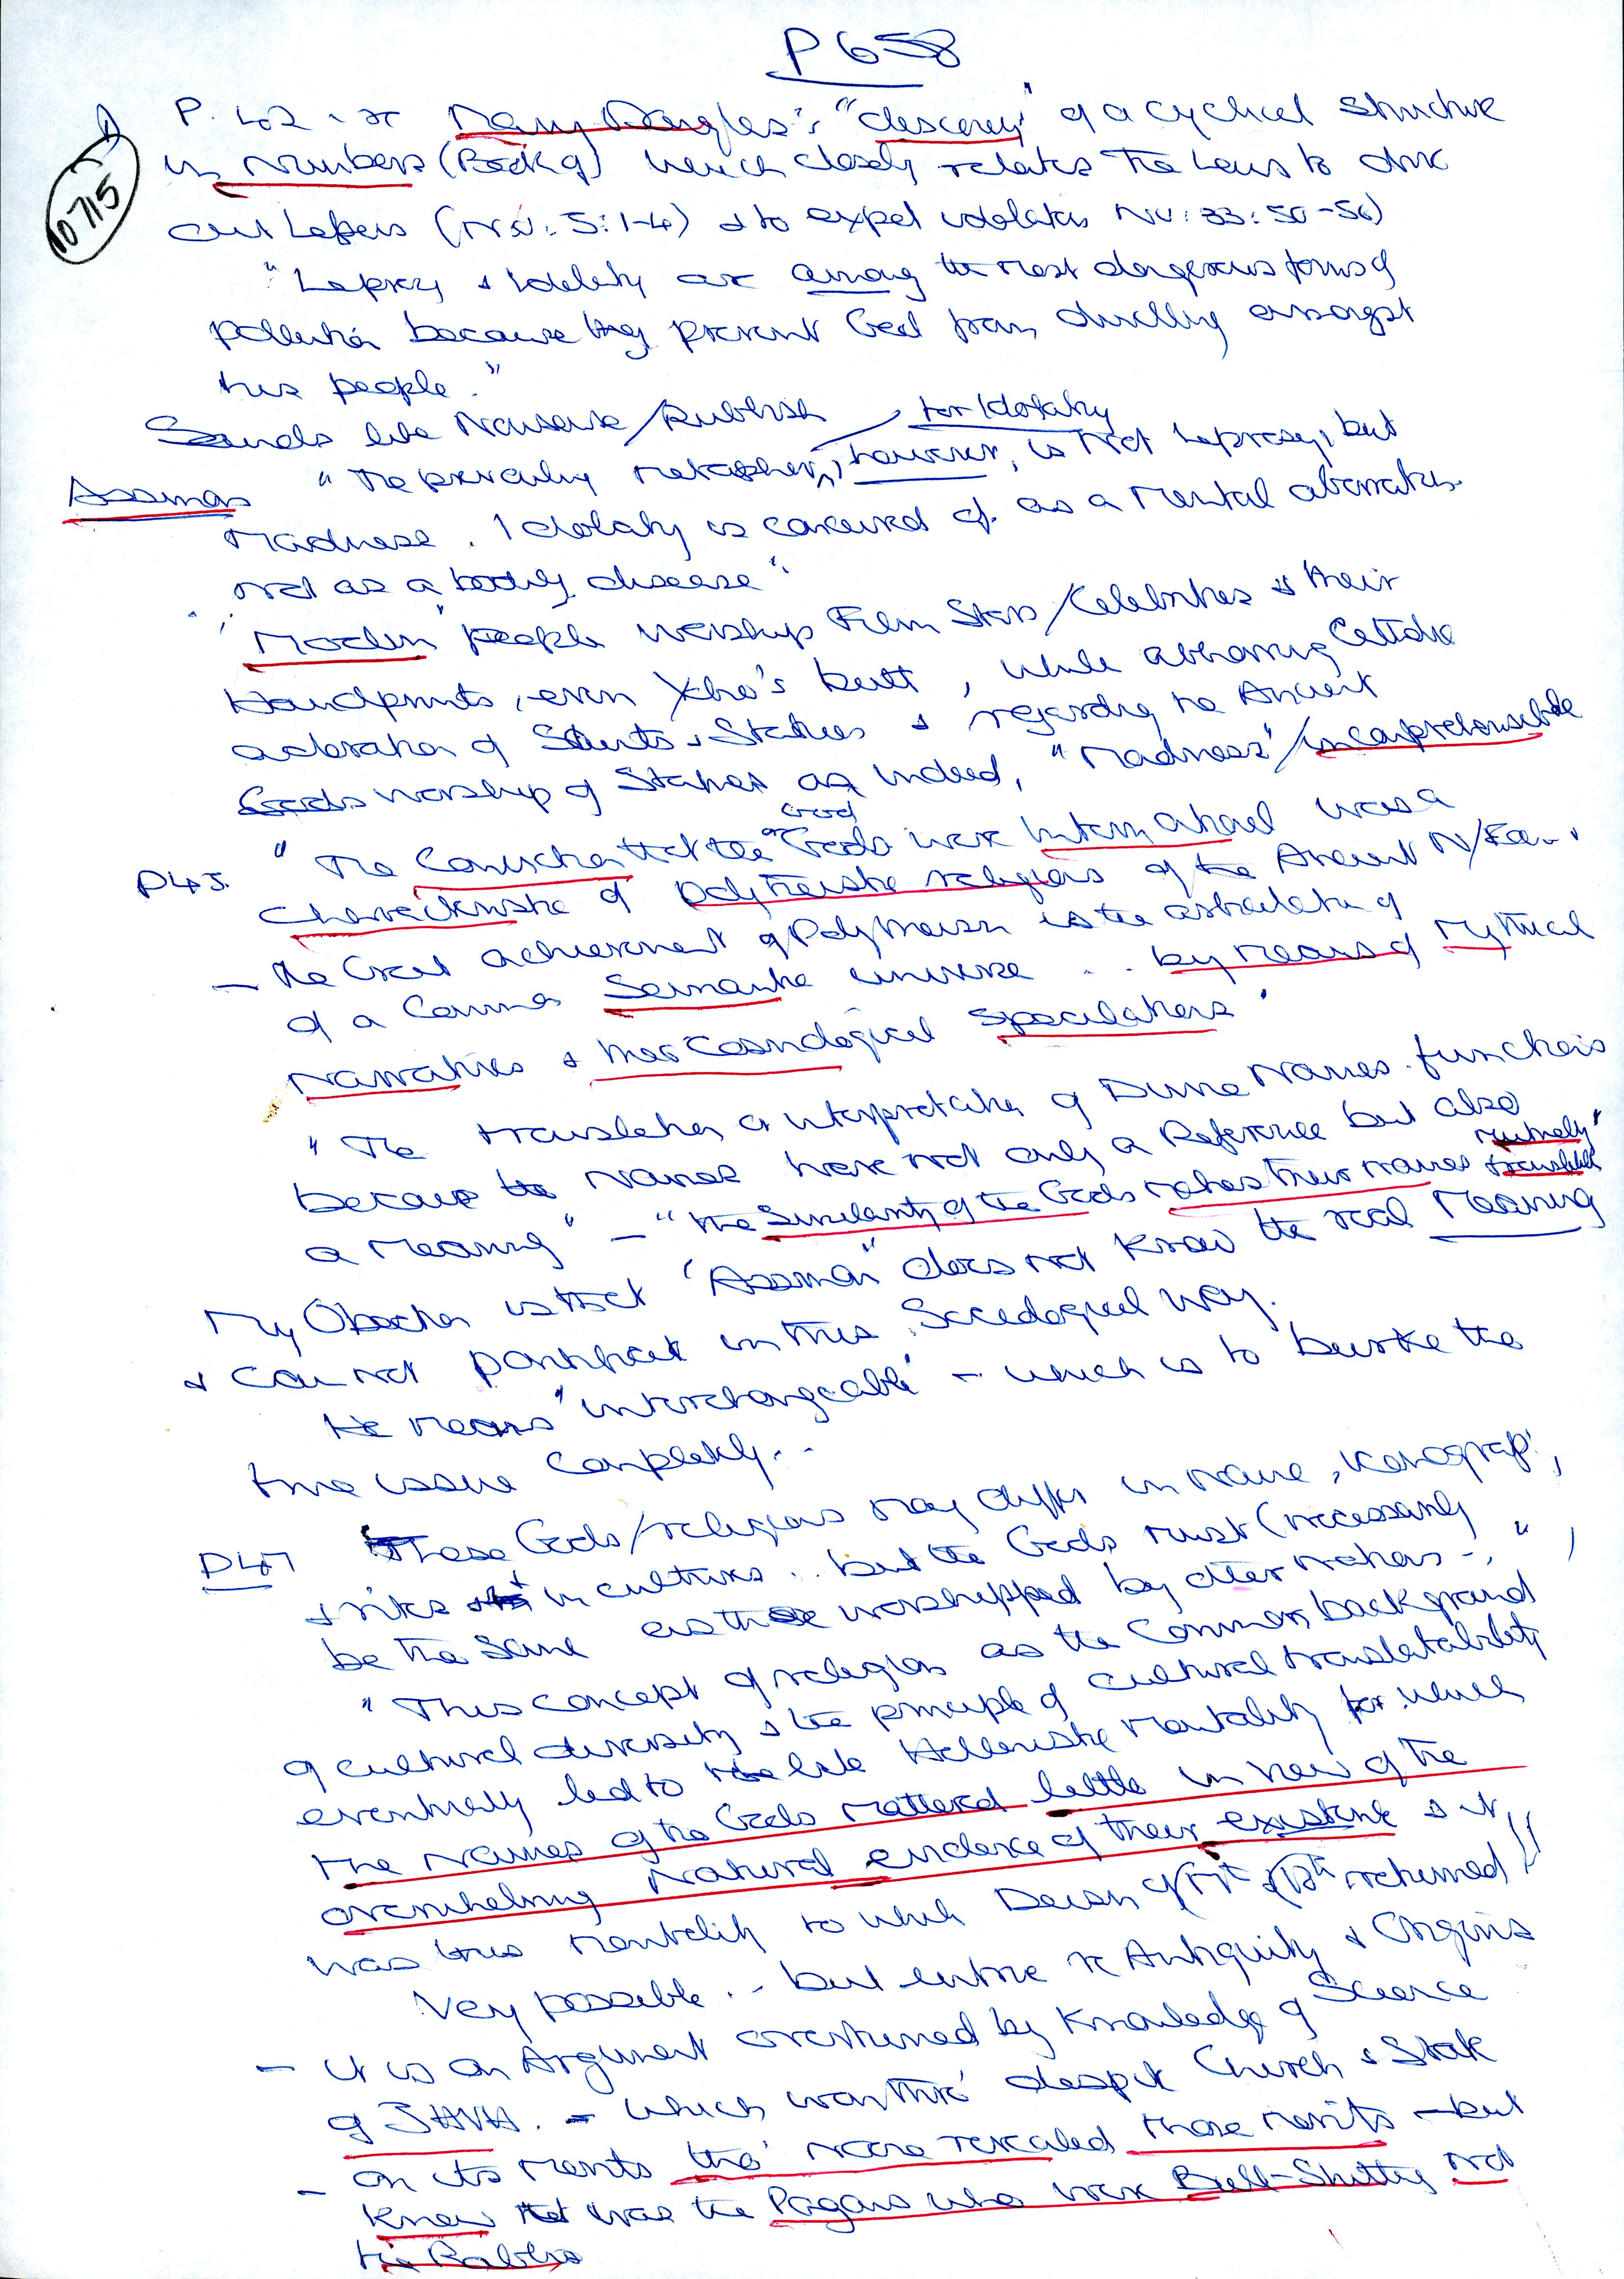 P 658
10715
P. 42 - re Mary Douglas's "discovery" of a cyclical structure
in Numbers (Book of) which closely relates the laws to drive
out Lepers (Nu: 5:1-4) & to expel idolaters Nu: 33:50-56)
"Leprosy & Idolatry are among the most dangerous forms of
pollution because they prevent God from dwelling amongst
his people."
Sounds like Nonsense/Rubbish for Idolatry
Assman "The prevailing metaphor, however, is not Leprosy, but
Madness. Idolatry is conceived of as a mental aberration
not as a bodily disease"
"Modern" people worship Film Stars/Celebrities & their
Handprints, even butt, while abhorring Catholic
adoration of Saints & Statues & regarding the Ancient
Gods worship of Statues as indeed, "Madness"/incomprehensible
P43. "The Conviction that the God or Gods were International was a
Characteristic of polytheistic religions of the Ancient N/East
- The Great achievement of Polytheism is the articulation of
of a Common Semantic universe .. by means of Mythical
Narratives & theocosmological speculations"
"The translation or interpretation of Divine Names functions
because the names have not only a Reference but also
a meaning" - "the Similarity of the Gods makes their names mutually translatable"
My Objection is that "Assman" does not know the real Meaning
& can not pontificate in this Sociological way.
He means "interchangeable" - which is to burke the
true issue completely..
P47 These Gods/religions may differ in name, iconography,
& rites & in cultures .. but the Gods must (necessarily
be the same as those worshipped by other nations -"
"This concept of religion as the common background
of cultural diversity & the principle of cultural translatability
eventually led to the late Hellenistic mentality for which
the names of the Gods mattered little in view of the
overwhelming Natural evidence of their existence & it
was this mentality to which Deism of 17th & 18th returned
Very possible .. but entire re Antiquity & Origins
- it is an Argument overturned by Knowledge of Science
of - which despite Church & State
- on its merits tho' none revealed those merits - but
knew that was the Pagans who were Bull-Shitting not
the Rabbis